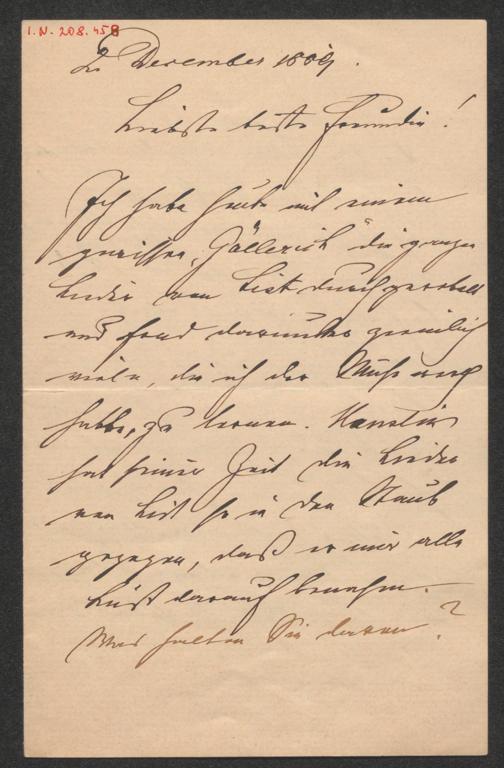 I.N. 208.458
2. December 1889.
Liebste beste Freundin!
Ich habe heute mit einem
gewissen „Göllerich" die ganzen
Lieder von List durchgerobelt
und fand darunter ziemlich
viele, die ich der Mühe werth
halte, zu lernen.
hat seiner Zeit die Lieder
von List so in den Staub
gezogen, daß er mir alle
Lust darauf benahm.
Was halten Sie davon?